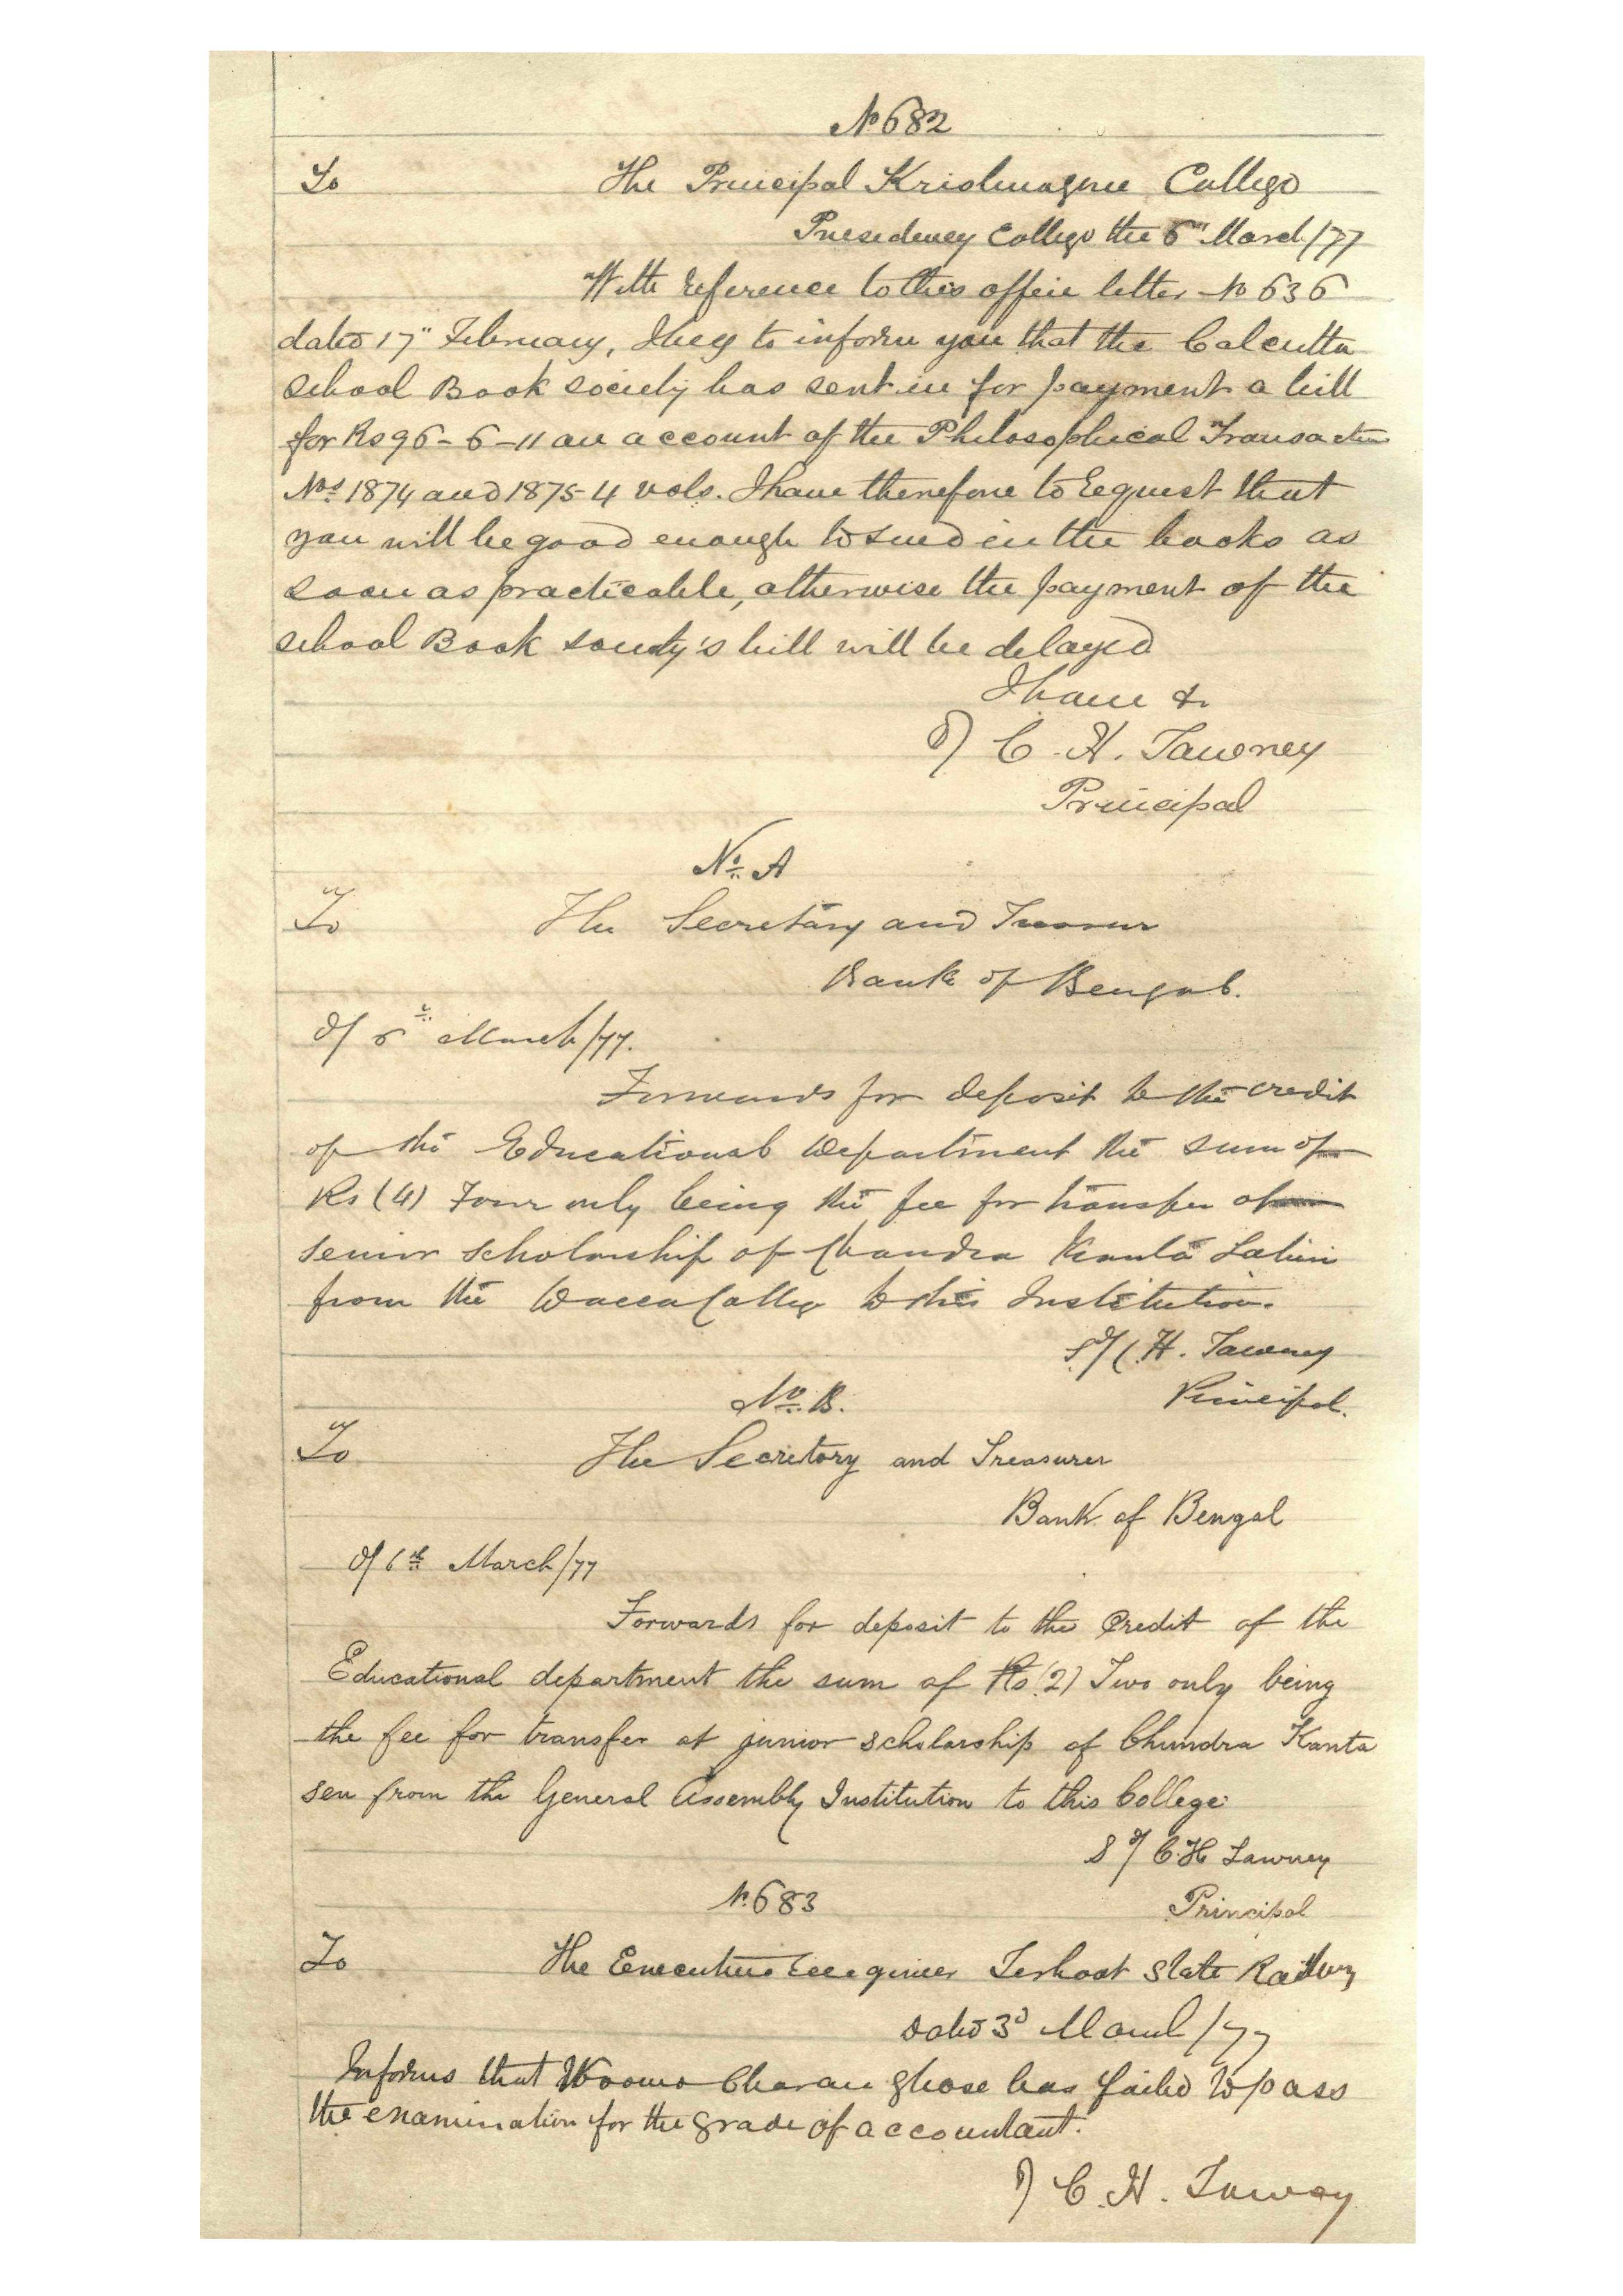 No 682
To The Principal Krishnagur College
Presidency College the 6" March/77
With reference to this office letter No 636
dated 17" February, I beg to inform you that the Calcutta
School Book society has sent in for payment a bill
for Rs 96-6-11 on account of the Philosophical Transaction
Nos 1874 and 1875-4 vols. I have therefore to request that
you will be good enough to send in the books as
soon as practicable, otherwise the payment of the
school Book society's bill will be delayed
I have &
C. H. Tawney
Principal
No. A
To The Secretary and Treasurer
Bank of Bengal.
d/ 6th March/77.
Forwards for deposit to the credit
of the Educational Department the sum of
Rs (4) Four only being the fee for transfer of
senior scholarship of Chandra Kanta Lahiri
from the Dacca College to this Institution.
Sd/ C. H. Tawney
Principal.
No. B.
To The Secretory and Treasurer
Bank of Bengal
d/ 6th March/77
Forwards for deposit to the Credit of the
Educational department the sum of Rs (2) Two only being
the fee for transfer of junior scholarship of Chundra Kanta
sen from the General Assembly Institution to this College
Sd/ C. H Tawney
No. 683
Principal
To The Executive Engineer Terhoot State Railway
dated 3d March/77
Informs that Woomo Charan ghose has failed to pass
the examination for the grade of accountant.
C. H. Tawney